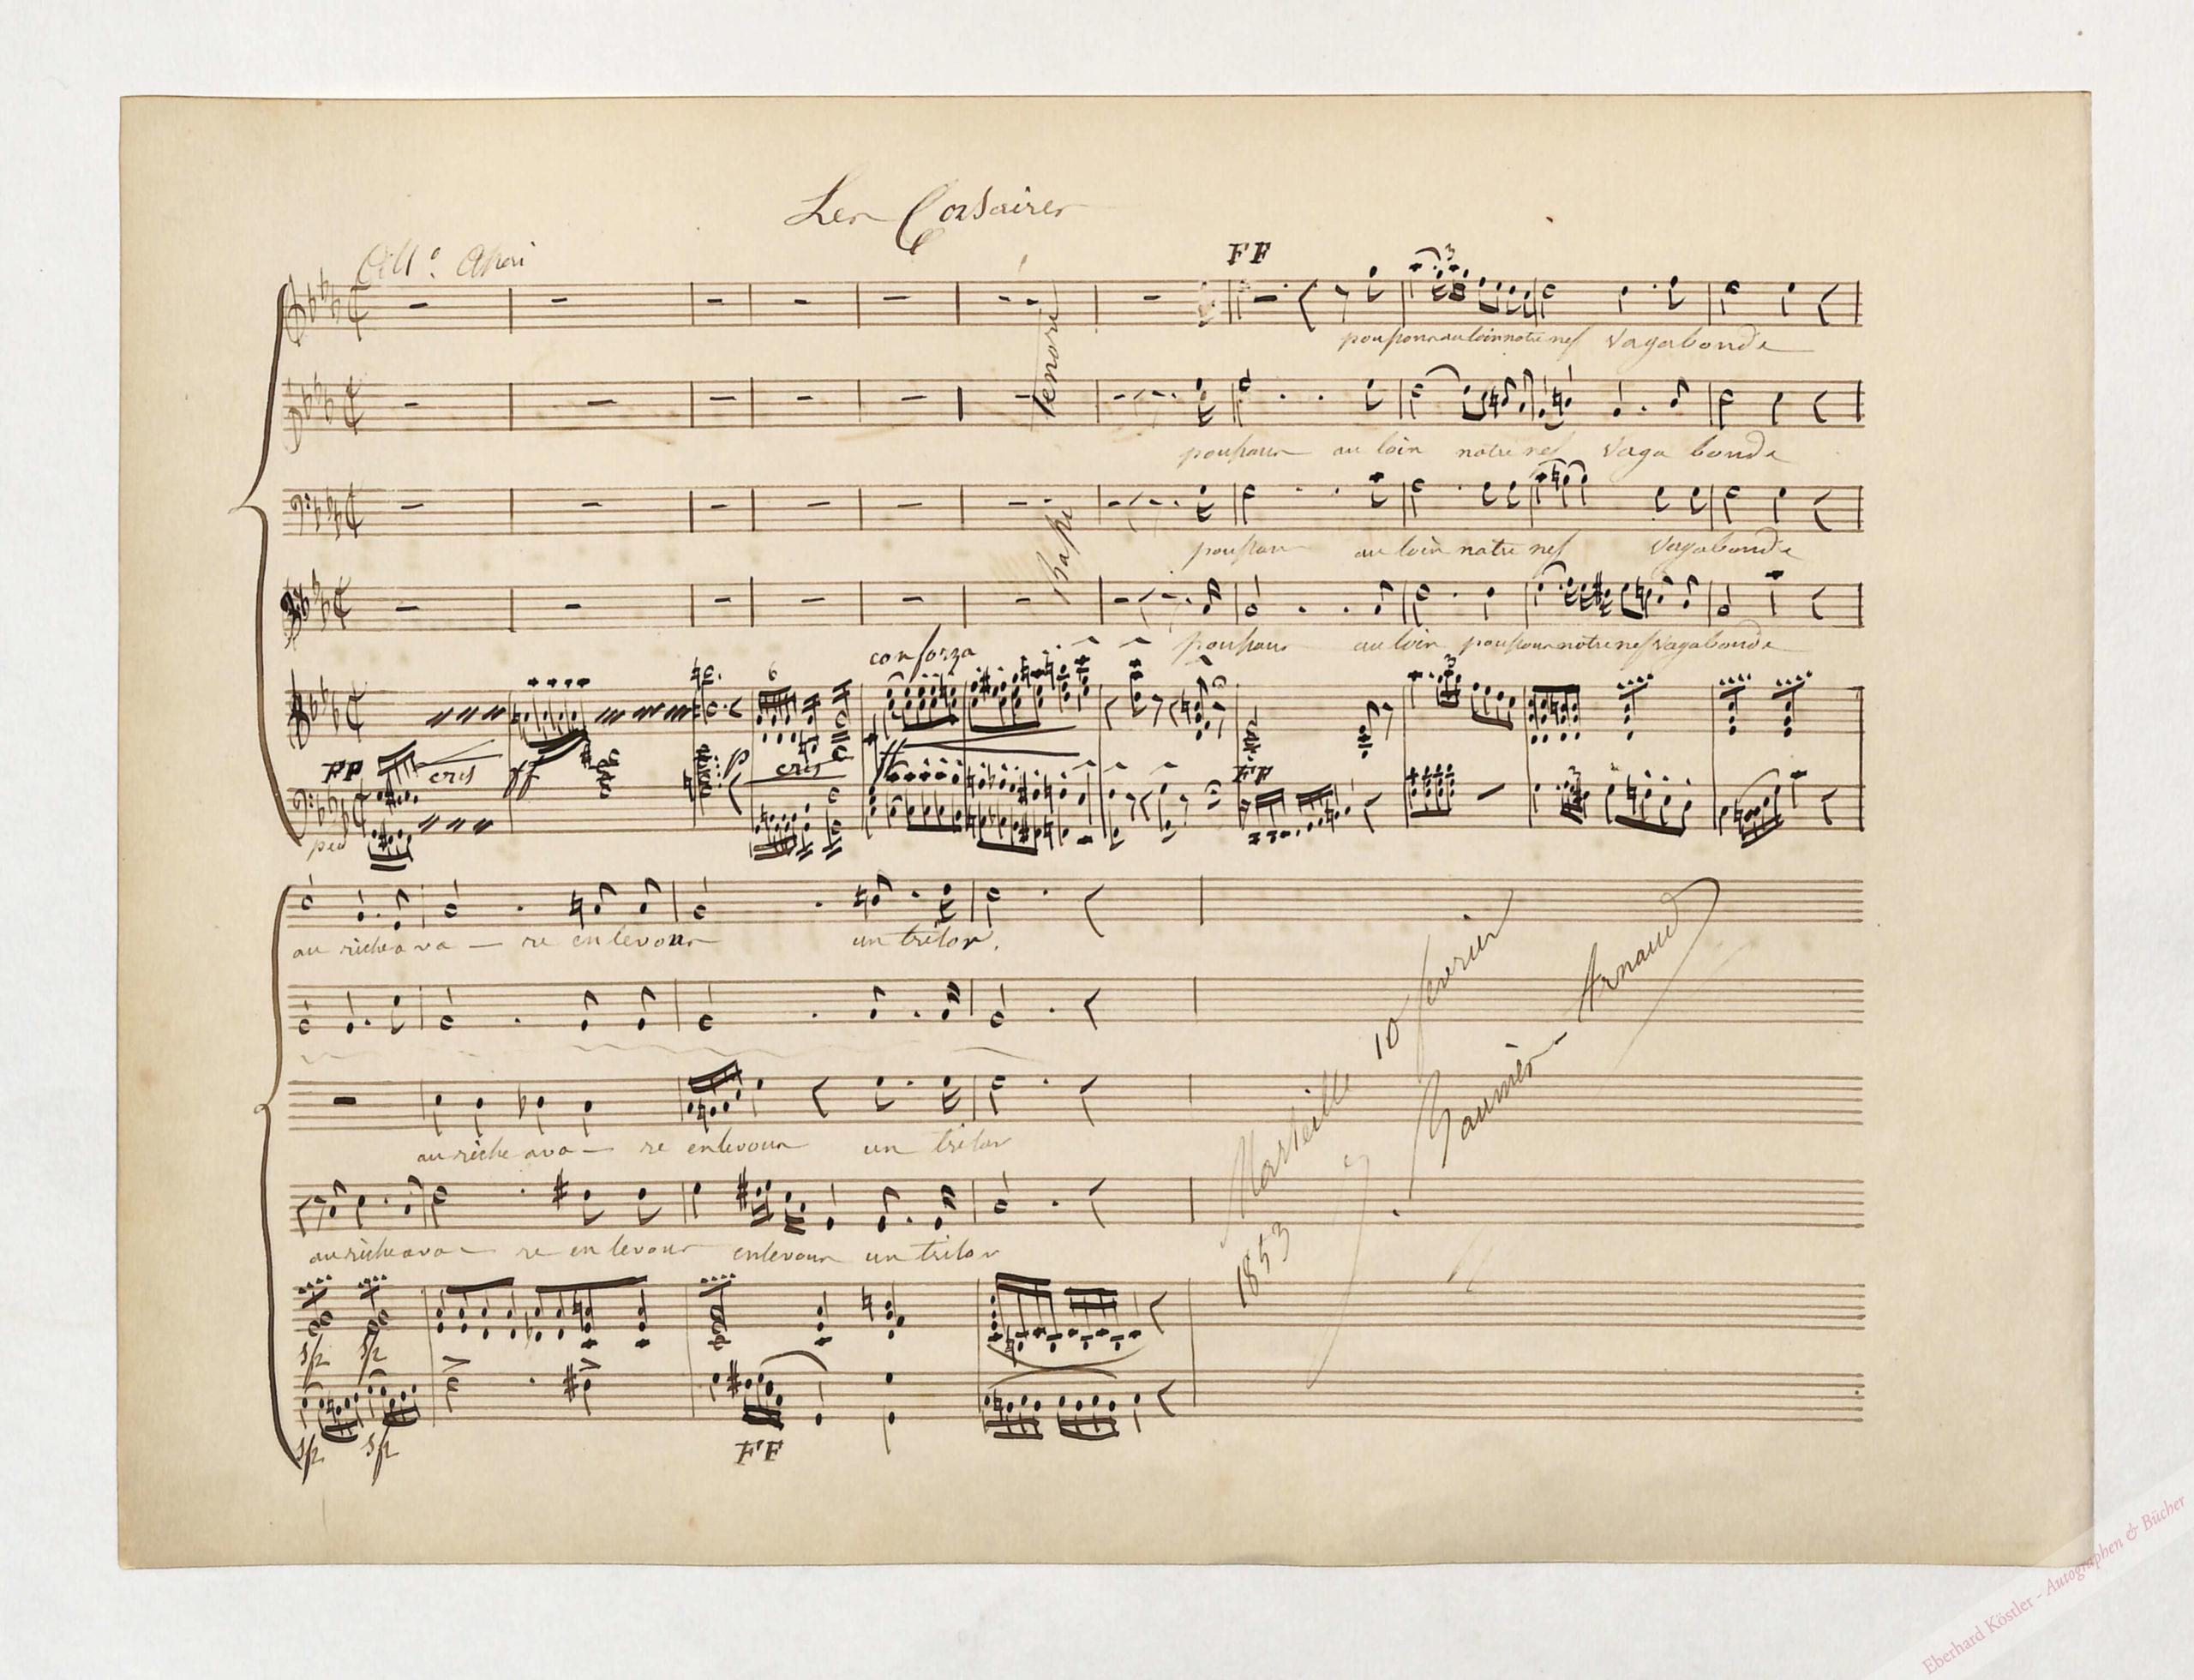 Les Corsaires
All.º Assai
FF
tenori
poussons au loin notre nef vagabonde
poussons au loin notre nef vaga bonde
Bassi
poussons au loin notre nef vagabonde
poussons au loin poussons notre nef vagabonde
con forza
6
3
PP cres ff P cres ff FF
ped
au riche ava — re enlevons un trésor.
au riche ava — re enlevons un trésor
au riche ava — re en levons enlevons un trésor
sf sf
sf sf
FF
Marseille 10 février
1853
Arnaud
Eberhard Köstler - Autographen & Bücher